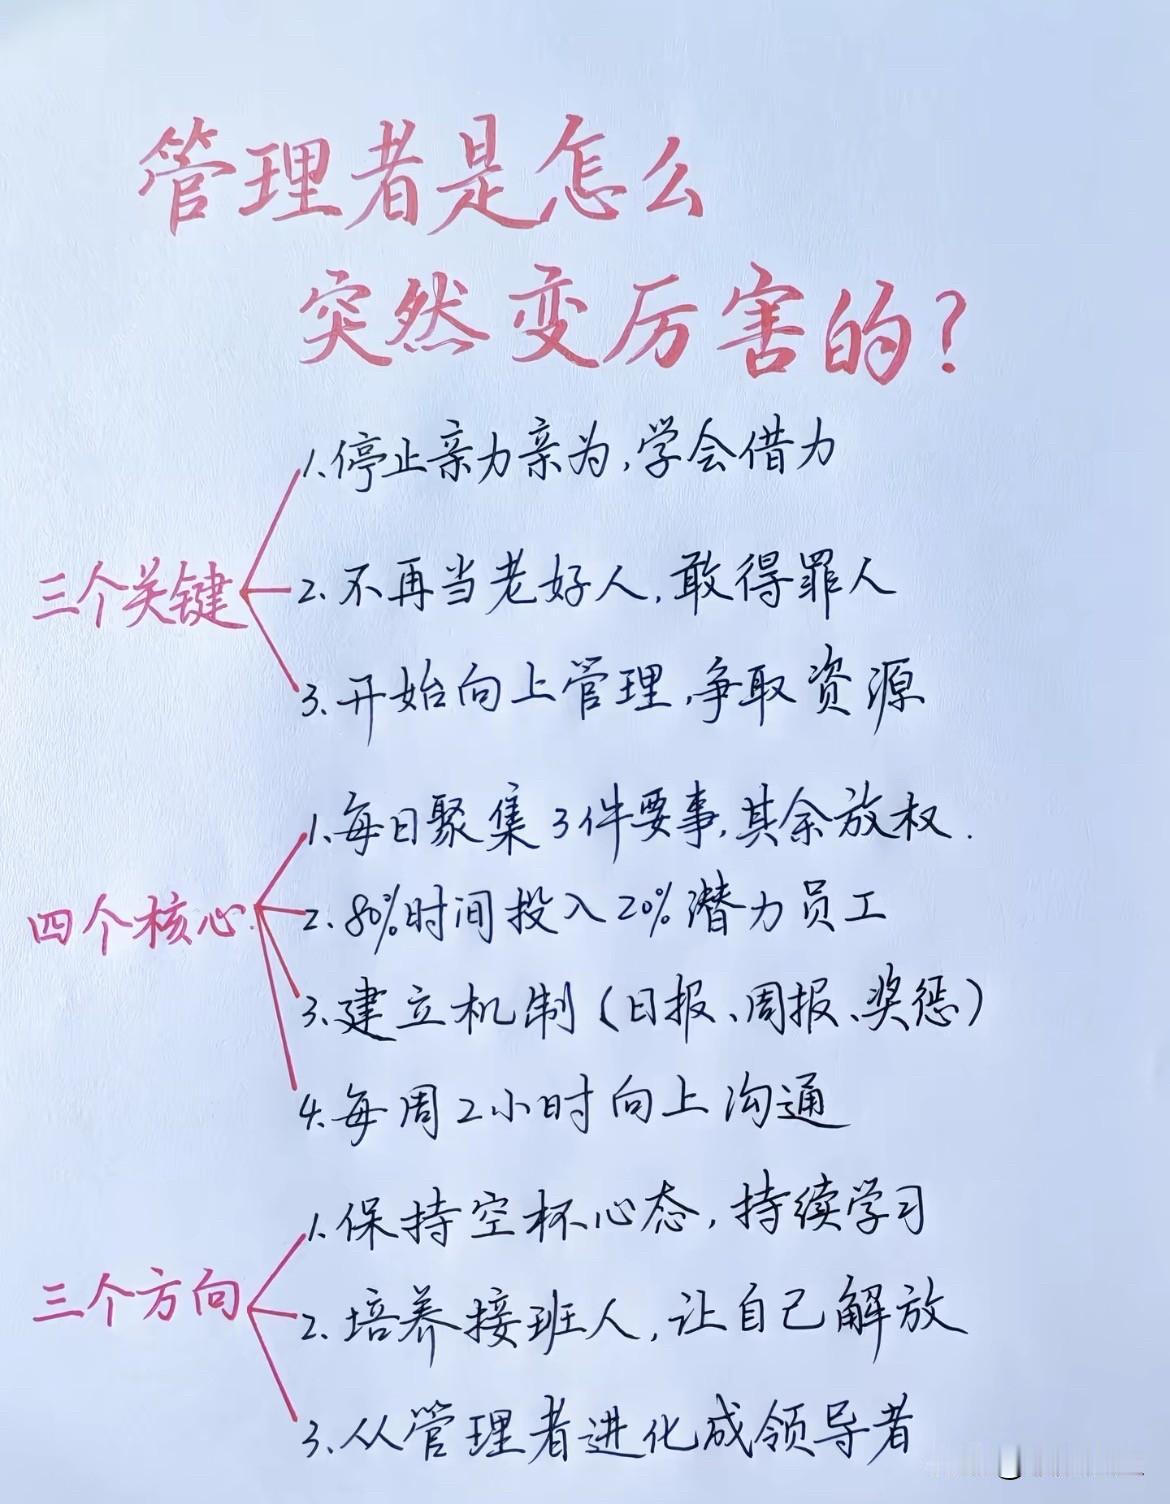 管理者是怎么
突然变厉害的?
三个关键
1.停止亲力亲为,学会借力
2.不再当老好人,敢得罪人
3.开始向上管理,争取资源
四个核心.
1.每日聚集3件要事,其余放权.
2.80%时间投入20%潜力员工
3.建立机制(日报、周报、奖惩)
4.每周2小时向上沟通
三个方向
1.保持空杯心态,持续学习
2.培养接班人,让自己解放
3.从管理者进化成领导者